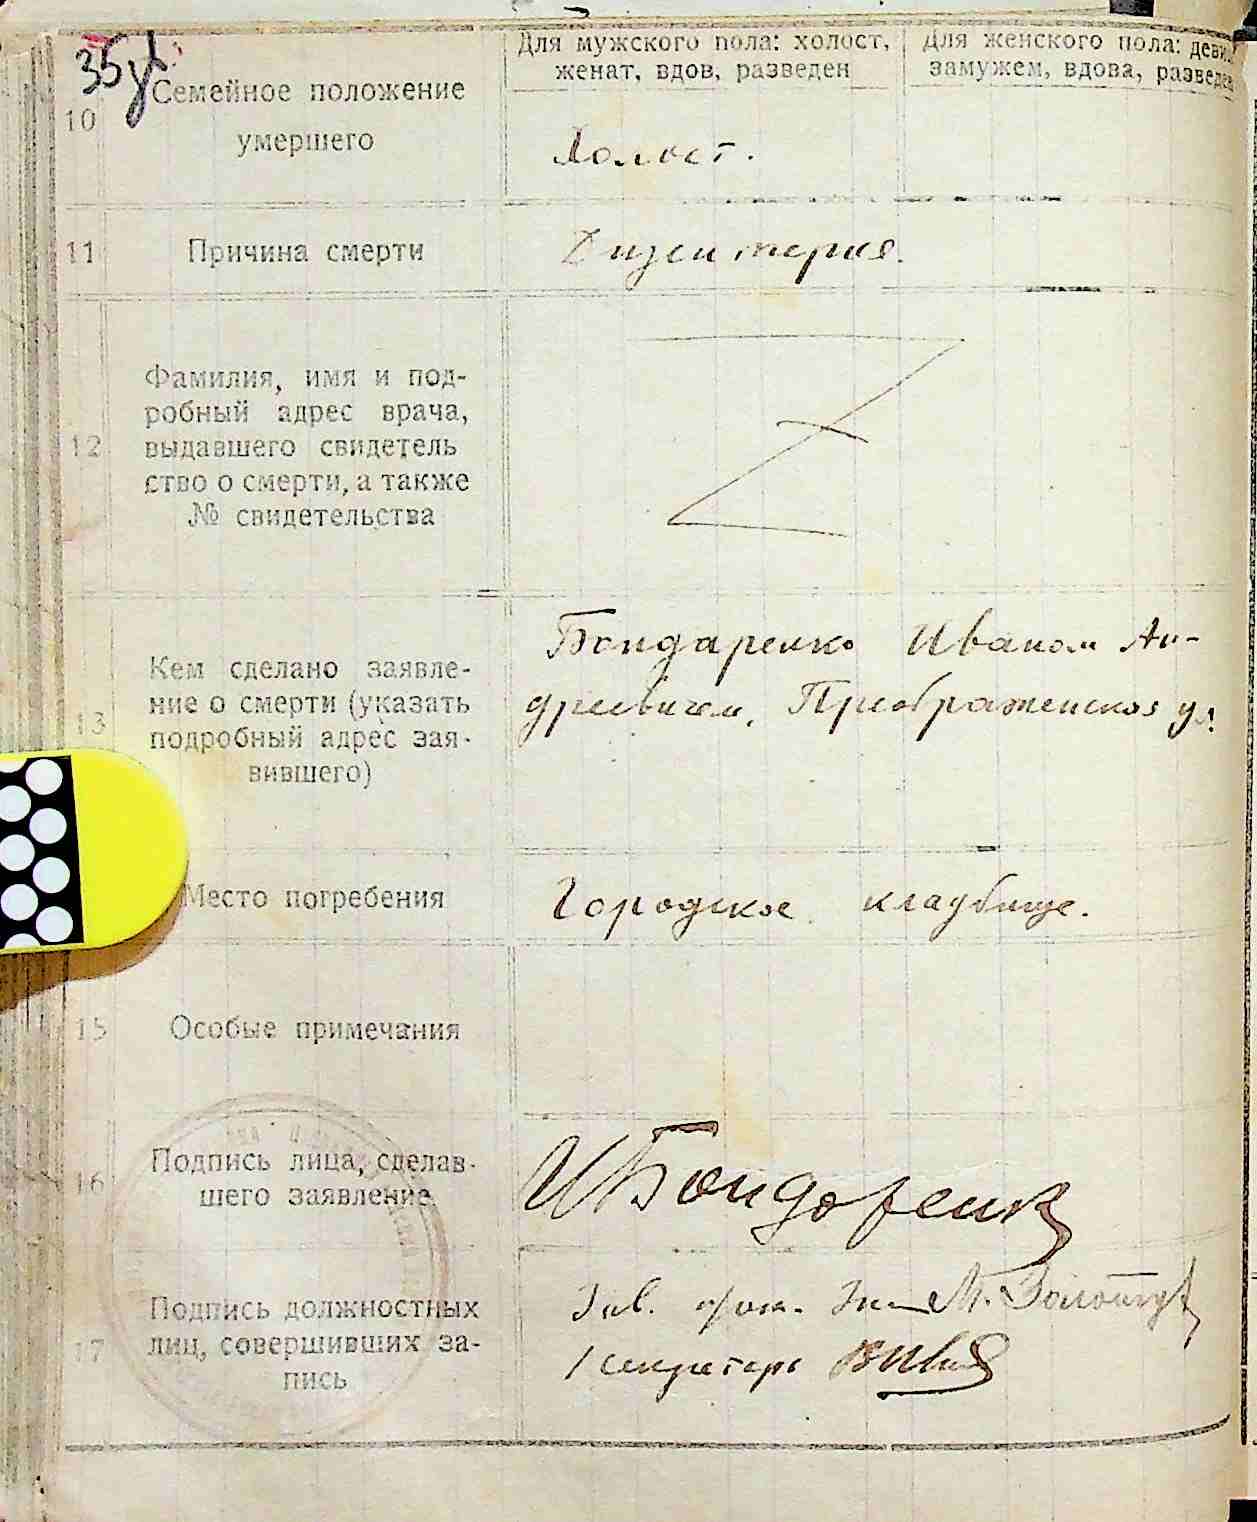 Для мужского пола: холост,
женат, вдов, разведен
Для женского пола: девица,
замужем, вдова, разведен
10
Семейное положение
умершего
Холост.
11
Причина смерти
Дизентерия.
12
Фамилия, имя и под-
робный адрес врача,
выдавшего свидетель
ство о смерти, а также
№ свидетельства
13
Кем сделано заявле-
ние о смерти (указать
подробный адрес зая-
вившего)
Бондаренко Иваном Ан-
дреевичем, Преображенская ул.
Место погребения
Городское кладбище.
15
Особые примечания
16
Подпись лица, сделав-
шего заявление
ИБондаренко
17
Подпись должностных
лиц, совершивших за-
пись
Зав.
секретарь